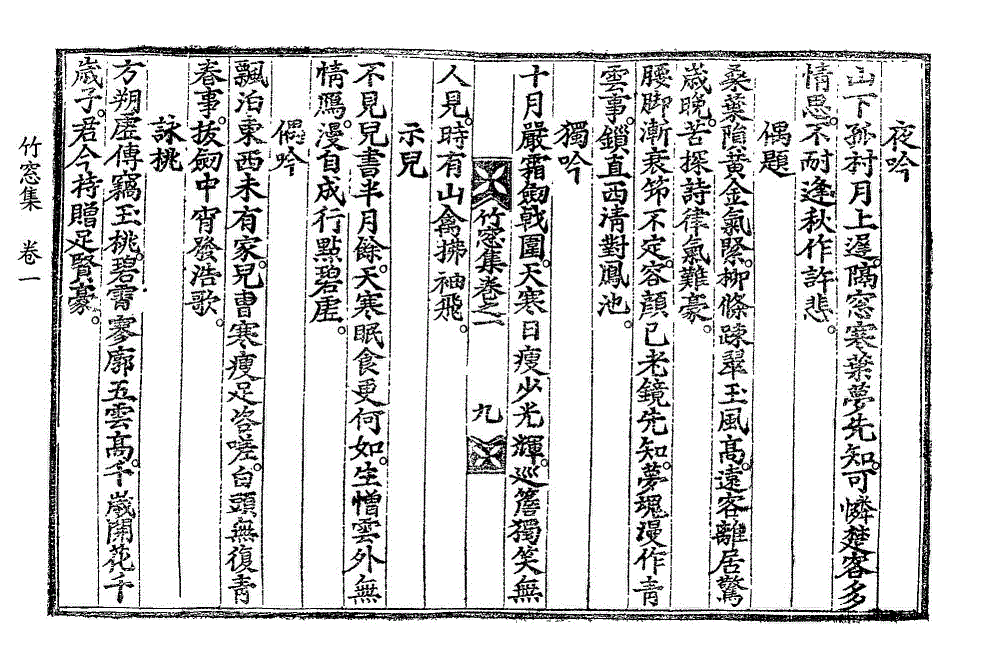 夜吟
山下孤村月上遲。隔窓寒葉夢先知。可憐楚客多
情思。不耐逢秋作許悲。
偶題
桑葉隕黃金氣緊。柳條踈翠玉風高。遠客離居驚
歲晩。苦探詩律氣難豪。
腰脚漸衰笻不定。容顔已老鏡先知。夢魂漫作靑
雲事。鎖直西淸對鳳池。
獨吟
十月嚴霜劒戟圍。天寒日瘦少光輝。巡簷獨笑無
竹窓集卷之一 九
人見。時有山禽拂袖飛。
示兒
不見兒書半月餘。天寒眠食更何如。生憎雲外無
情鴈。漫自成行點碧虛。
偶吟
飄泊東西未有家。兒曺寒瘦足咨嗟。白頭無復靑
春事。拔劒中宵發浩歌。
詠桃
方朔虛傳竊玉桃。碧霄寥廓五雲高。千歲開花千
歲子。君今持贈足賢豪。
竹窓集 卷一